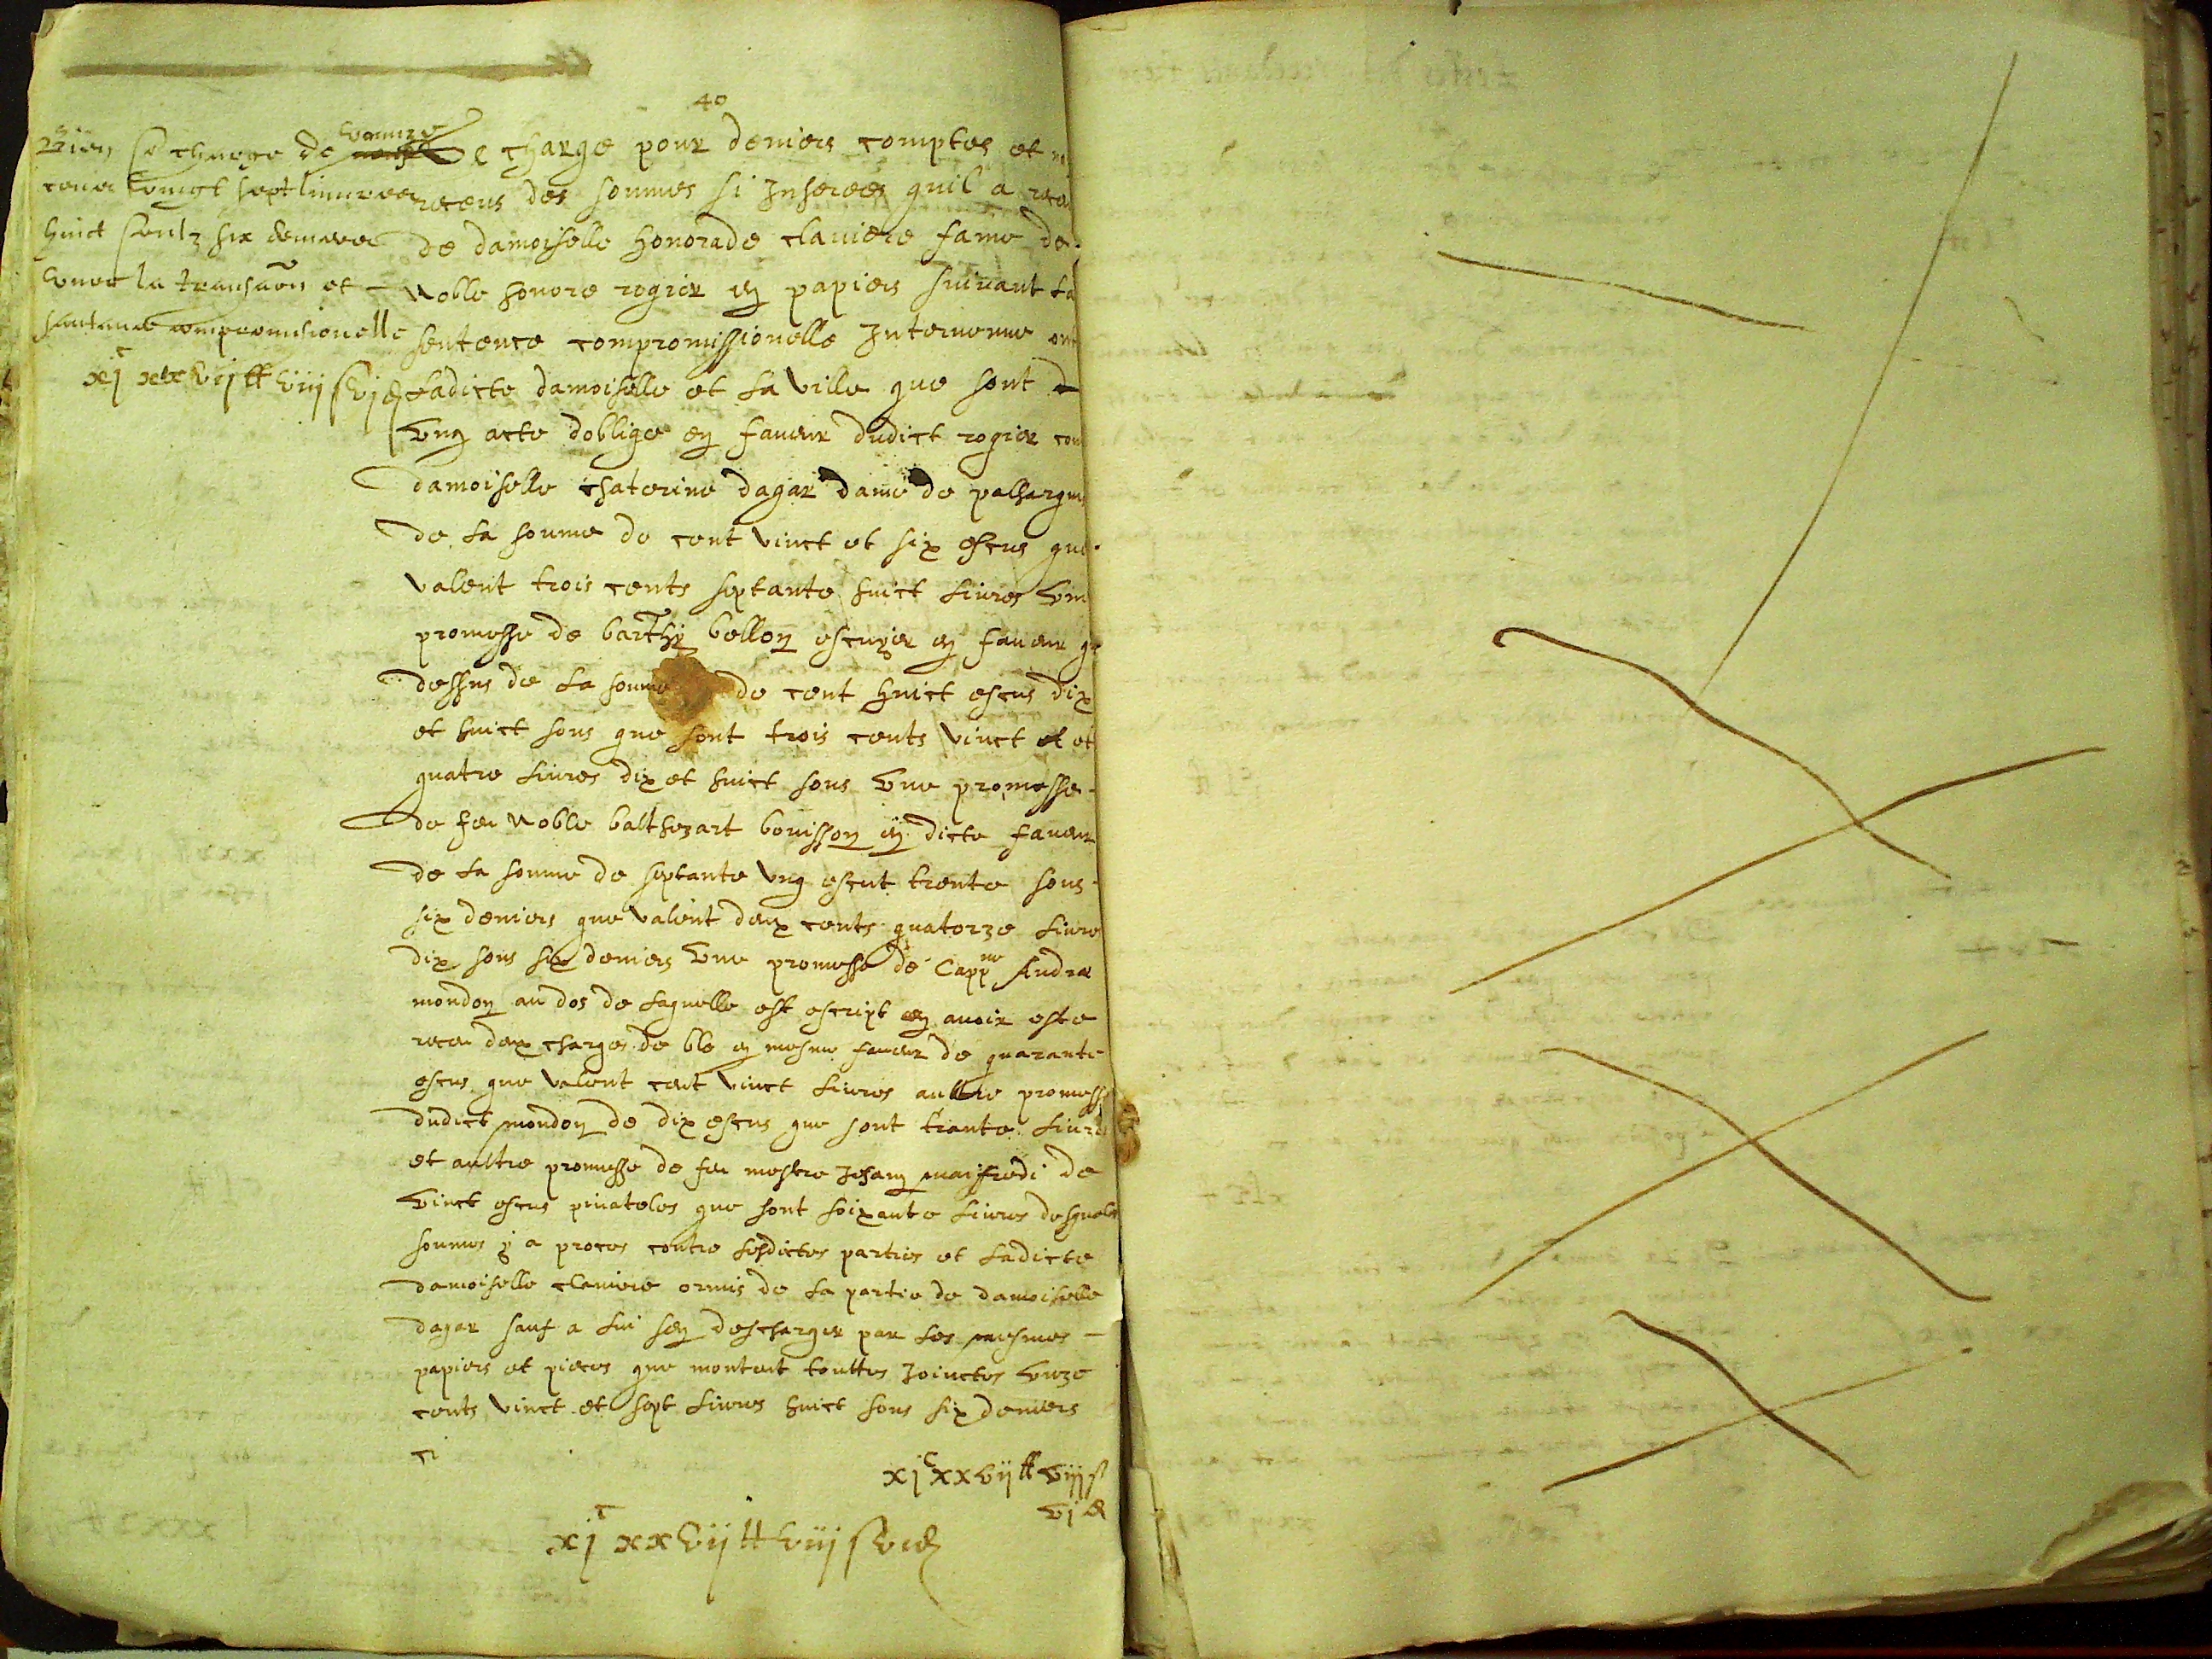 40
Bien se charge de vounze
cens vingt sept livres
huict soulz six deniers
avec la transaon et
santance compromisionelle
xj^c xxvij ₶ viij s vj d
Se charge pour deniers comptes et
receus des sommes si Inserees quil a receu
de damoiselle honorade claviere fame de
Noble honore rogier en papiers suivant La
sentence compromissionelle Intervenue ent
Ladicte damoiselle et La Ville que sont
Ung acte doblige en faveur dudict rogier con
damoiselle chaterine dagar dame de
de La somme de cent Vinct et six escus que
Valent trois cents septante huict Livres Un
promesse de barthy bellon escuyer en faveur
dessus de La somme de cent huict escus dix
et huict sous que sont trois cents Vinct et
quatre Livres dix et huict sous Une promesse
de feu Noble balthezart bouisson en dicte faveur
de La somme de septante Ung escut trente sous
six deniers que Valent deux cents quatorze Livre
dix sous six deniers Une promesse de Capp^ne Andre
mondon au dos de Laquelle est escript en avoir este
receu deux charges de ble en mesme faveur de quarante
escus que Valent cent Vinct Livres aultre promesse
dudict mondon de dix escus que sont trante Livres
et aultre promesse de feu mestre Jehan maifredi de
Vinct escus pinatoles que sont soixante Livres desquales
sommes y a proces contre Lesdictes parties et Ladicte
damoiselle claviere ormis de La partie de damoiselle
dagar sauf a Lui sen descharger par Les mesmes
papiers et pieces que montent touttes Joinctes Unze
cents Vinct et sept Livres huict sous six deniers
ci
xj^c xxvij ₶ viij s
vj d
xj^c xxvij ₶ viij s vj d